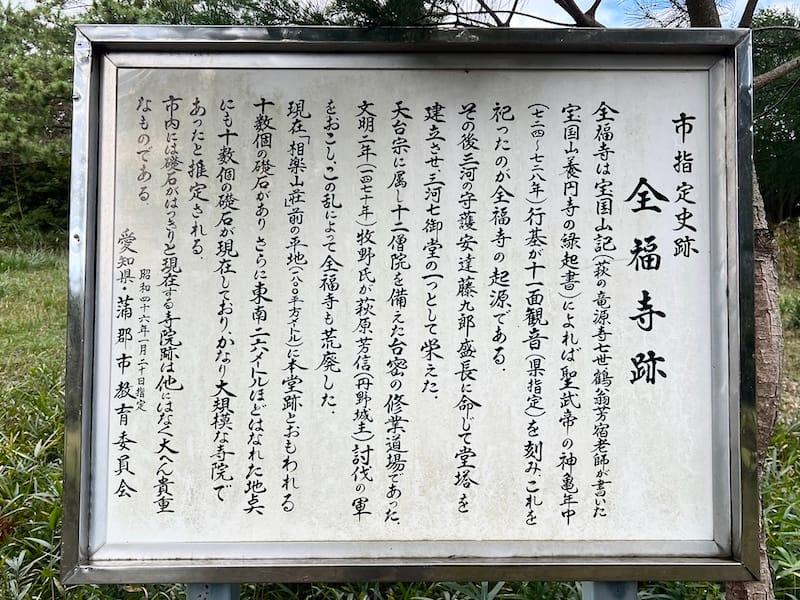 市指定史跡
全福寺跡
全福寺は宝国山記(萩の竜源寺七世鶴翁芳宿老師が書いた
宝国山養円寺の縁起書)によれば聖武帝の神亀年中
(七二四〜七二八年)行基が十一面観音(県指定)を刻み、これを
祀ったのが全福寺の起源である。
その後三河の守護安達藤九郎盛長に命じて堂塔を
建立させ、三河七御堂の一つとして栄えた。
天台宗に属し十二僧院を備えた台密の修業道場であった。
文明二年(一四七十年)牧野氏が萩原芳信(丹野城主)討伐の軍
をおこし、この乱によって全福寺も荒廃した。
現在「相楽山荘前の平地(一八〇〇平方メートル)に本堂跡とおもわれる
十数個の礎石がありさらに東南二六メートルほどはなれた地点
にも十数個の礎石が現在しており、かなり大規模な寺院で
あったと推定される。
市内には礎石がはっきりと現在する寺院跡は他にはなく大へん貴重
なものである。
昭和四十六年一月二十日指定
愛知県・蒲郡市教育委員会